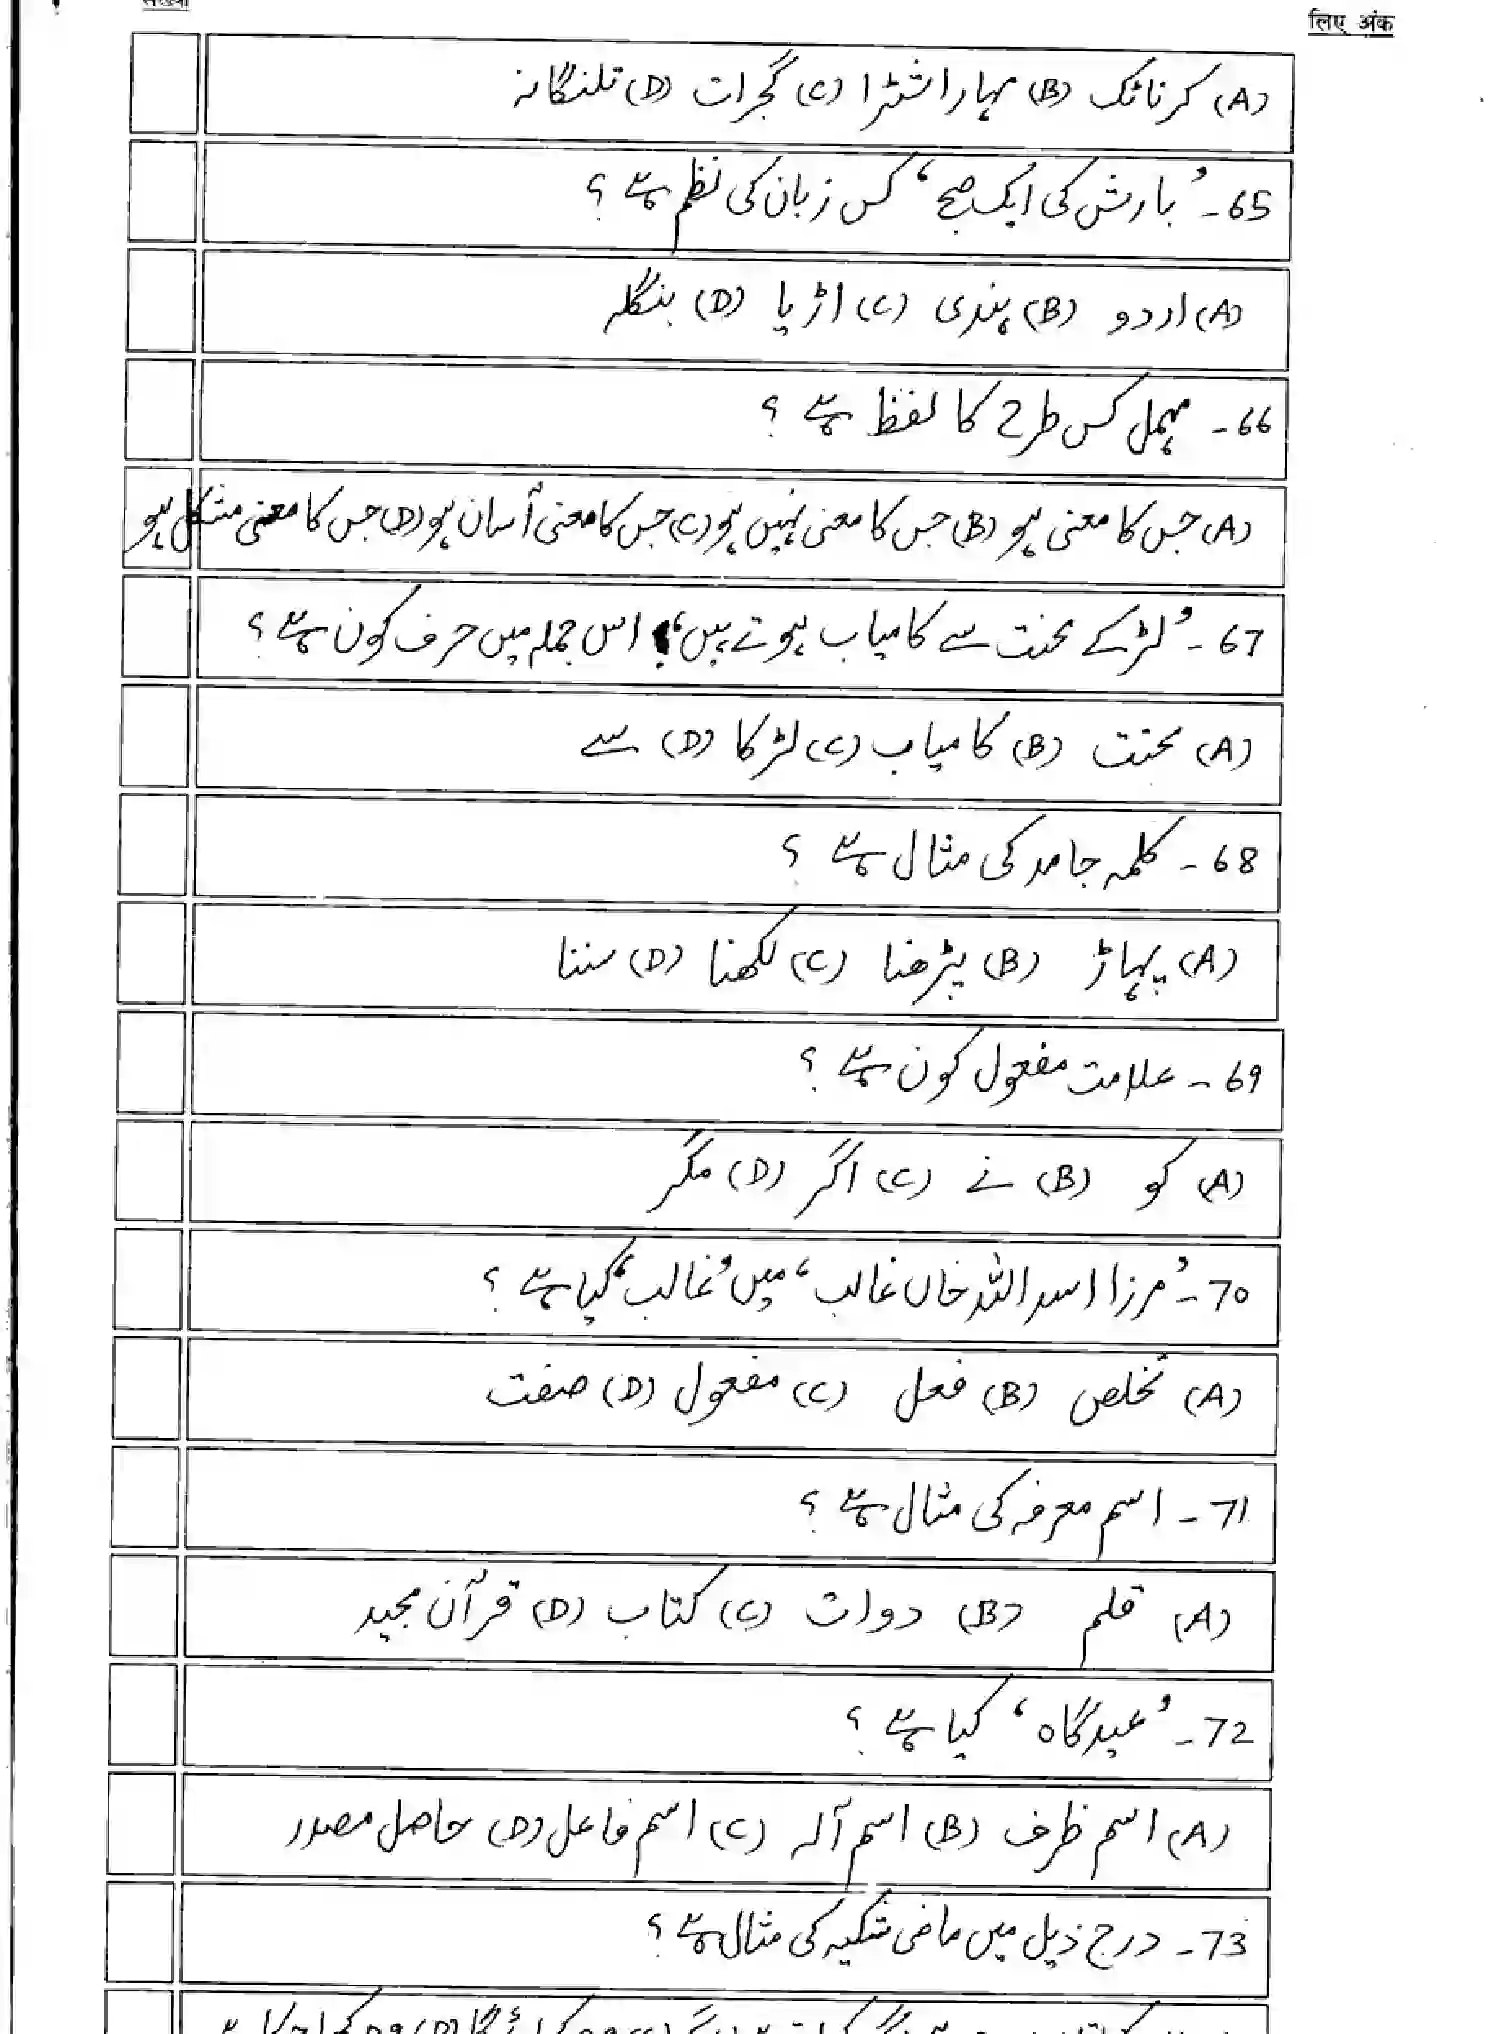 संख्या
लिए अंक
(A) کرناٹک (B) مہاراشٹرا (C) گجرات (D) تلنگانہ
65۔ ’بارش کی ایک صبح‘ کس زبان کی نظم ہے؟
(A) اردو (B) ہندی (C) اڑیا (D) بنگلہ
66۔ مہمل کس طرح کا لفظ ہے؟
(A) جس کا معنی ہو (B) جس کا معنی نہیں ہو (C) جس کا معنی آسان ہو (D) جس کا معنی مشکل ہو
67۔ ’لڑکے محنت سے کامیاب ہوتے ہیں‘ اس جملہ میں حرف کون ہے؟
(A) محنت (B) کامیاب (C) لڑکا (D) سے
68۔ کلمہ جامد کی مثال ہے؟
(A) پہاڑ (B) پڑھنا (C) لکھنا (D) سننا
69۔ علامت مفعول کون ہے؟
(A) کو (B) نے (C) اگر (D) مگر
70۔ ’مرزا اسد اللہ خاں غالب‘ میں ’غالب‘ کیا ہے؟
(A) تخلص (B) فعل (C) مفعول (D) صفت
71۔ اسم معرفہ کی مثال ہے؟
(A) قلم (B) دوات (C) کتاب (D) قرآن مجید
72۔ ’عیدگاہ‘ کیا ہے؟
(A) اسم ظرف (B) اسم آلہ (C) اسم فاعل (D) حاصل مصدر
73۔ درج ذیل میں ماضی شکیہ کی مثال ہے؟